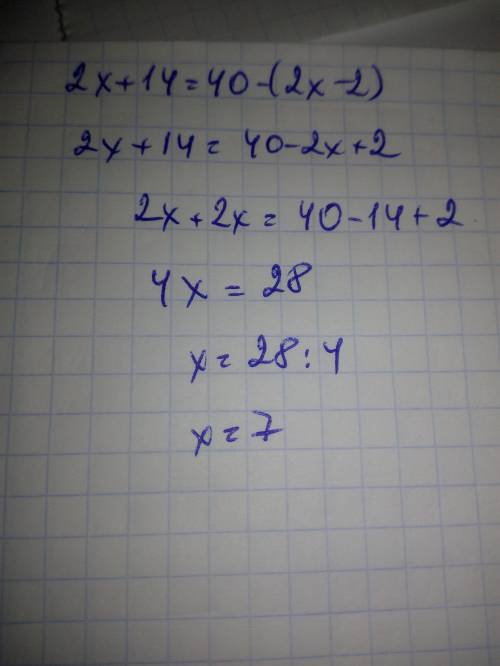 2x+14=40-(2x-2)
2x+14=40-2x+2
2x+2x=40-14+2
4x=28
x=28:4
x=7